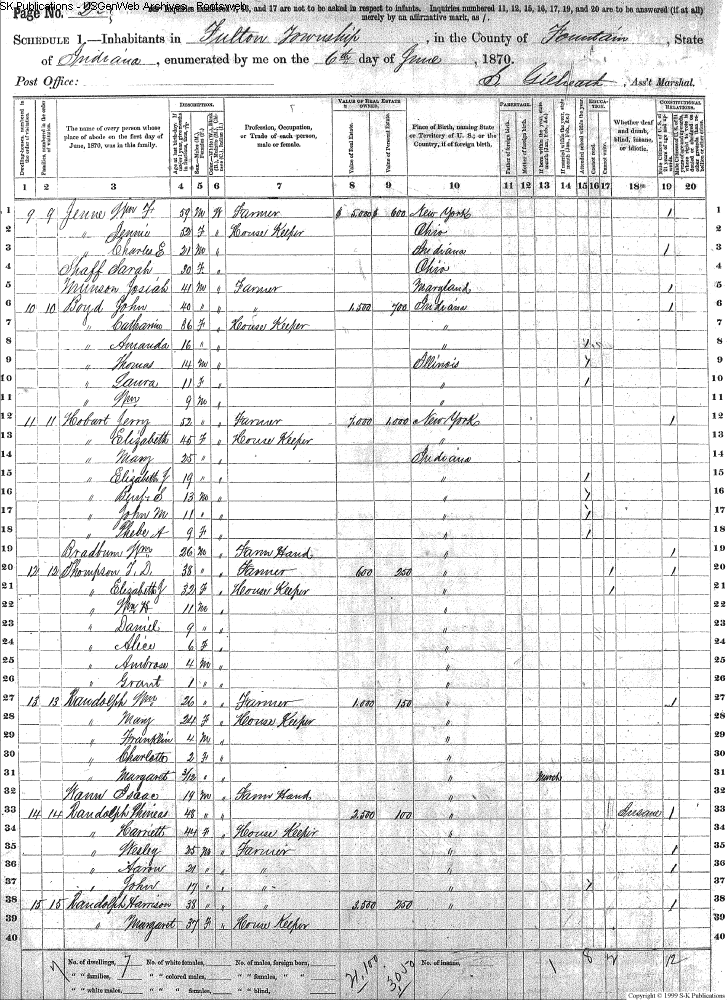 SK Publications - USGenWeb Archives - Rootsweb
Page No. 2
Inquiries numbered 7, 16, and 17 are not to be asked in respect to infants. Inquiries numbered 11, 12, 15, 16, 17, 19, and 20 are to be answered (if at all)
merely by an affirmative mark, as /.
SCHEDULE 1.—Inhabitants in Fulton Township, in the County of Fountain, State
of Indiana, enumerated by me on the 6th day of June, 1870.
Post Office: Ass't Marshal.
DESCRIPTION. VALUE OF REAL ESTATE OWNED. PARENTAGE. EDUCATION. CONSTITUTIONAL RELATIONS.
The name of every person whose place of abode on the first day of June, 1870, was in this family.
Profession, Occupation, or Trade of each person, male or female.
Value of Real Estate. Value of Personal Estate.
Place of Birth, naming State or Territory of U. S.; or the Country, if of foreign birth.
Father of foreign birth. Mother of foreign birth.
Attended school within the year. Cannot read. Cannot write.
Whether deaf and dumb, blind, insane, or idiotic.
1 2 3 4 5 6 7 8 9 10 11 12 13 14 15 16 17 18 19 20
1 9 9 Jenne Wm F. 59 M W Farmer $ 5.000 $ 600 New York 1 1
2 " Jennie 52 F " House Keeper Ohio 2
3 " Charles E 21 M " Indiana 1 3
4 Shaff Sarah 30 F " Ohio 4
5 Munson Josiah 41 M " Farmer Maryland 1 5
6 10 10 Boyd John 40 " " " 1,500 700 Indiana 1 6
7 " Catharine 36 F " House Keeper " 7
8 " Amanda 16 " " " 1 8
9 " Thomas 14 M " Illinois 1 9
10 " Laura 11 F " " 1 10
11 " Wm 9 M " " 11
12 11 11 Hobart Jerry 52 " " Farmer 7,000 1,000 New York 1 12
13 " Elizabeth 45 F " House Keeper " 13
14 " Mary 25 " " Indiana 14
15 " Elizabeth J 19 " " " 1 15
16 " S 13 M " " 1 16
17 " John M 11 " " " 1 17
18 " Phebe A 9 F " " 1 18
19 Bradburn Wm 26 M " Farm Hand " 1 19
20 12 12 Thompson T. D. 38 " " Farmer 600 250 " 1 1 20
21 " Elizabeth J 32 F " House Keeper " 1 21
22 " Wm H 11 M " " 22
23 " Daniel 9 " " " 23
24 " Alice 6 F " " 24
25 " Ambrose 4 M " " 25
26 " Grant 1 " " " 26
27 13 13 Randolph Wm 26 " " Farmer 1,000 150 " 1 27
28 " Mary 24 F " House Keeper " 28
29 " Franklin 4 M " " 29
30 " Charlotte 2 F " " 30
31 " Margaret 3/12 " " " March 31
32 Wann Isaac 19 M " Farm Hand " 32
33 14 14 Randolph Phineas 48 " " 2,500 100 " Insane 1 33
34 " Harriett 44 F " House Keeper " 34
35 " Wesley 25 M " Farmer " 1 35
36 " Aaron 21 " " " " 1 36
37 " John 17 " " " " 1 37
38 15 15 Randolph Harrison 38 " " " 3,500 250 " 1 38
39 " Margaret 37 F " House Keeper " 39
40 40
7 No. of dwellings, 7 No. of white females, No. of males, foreign born, 21,100 3050 No. of insane, 1 8 2 12
" " families, " " colored males, " " females, "
" " white males, " " " females, " " blind,
Copyright © 1999 S-K Publications